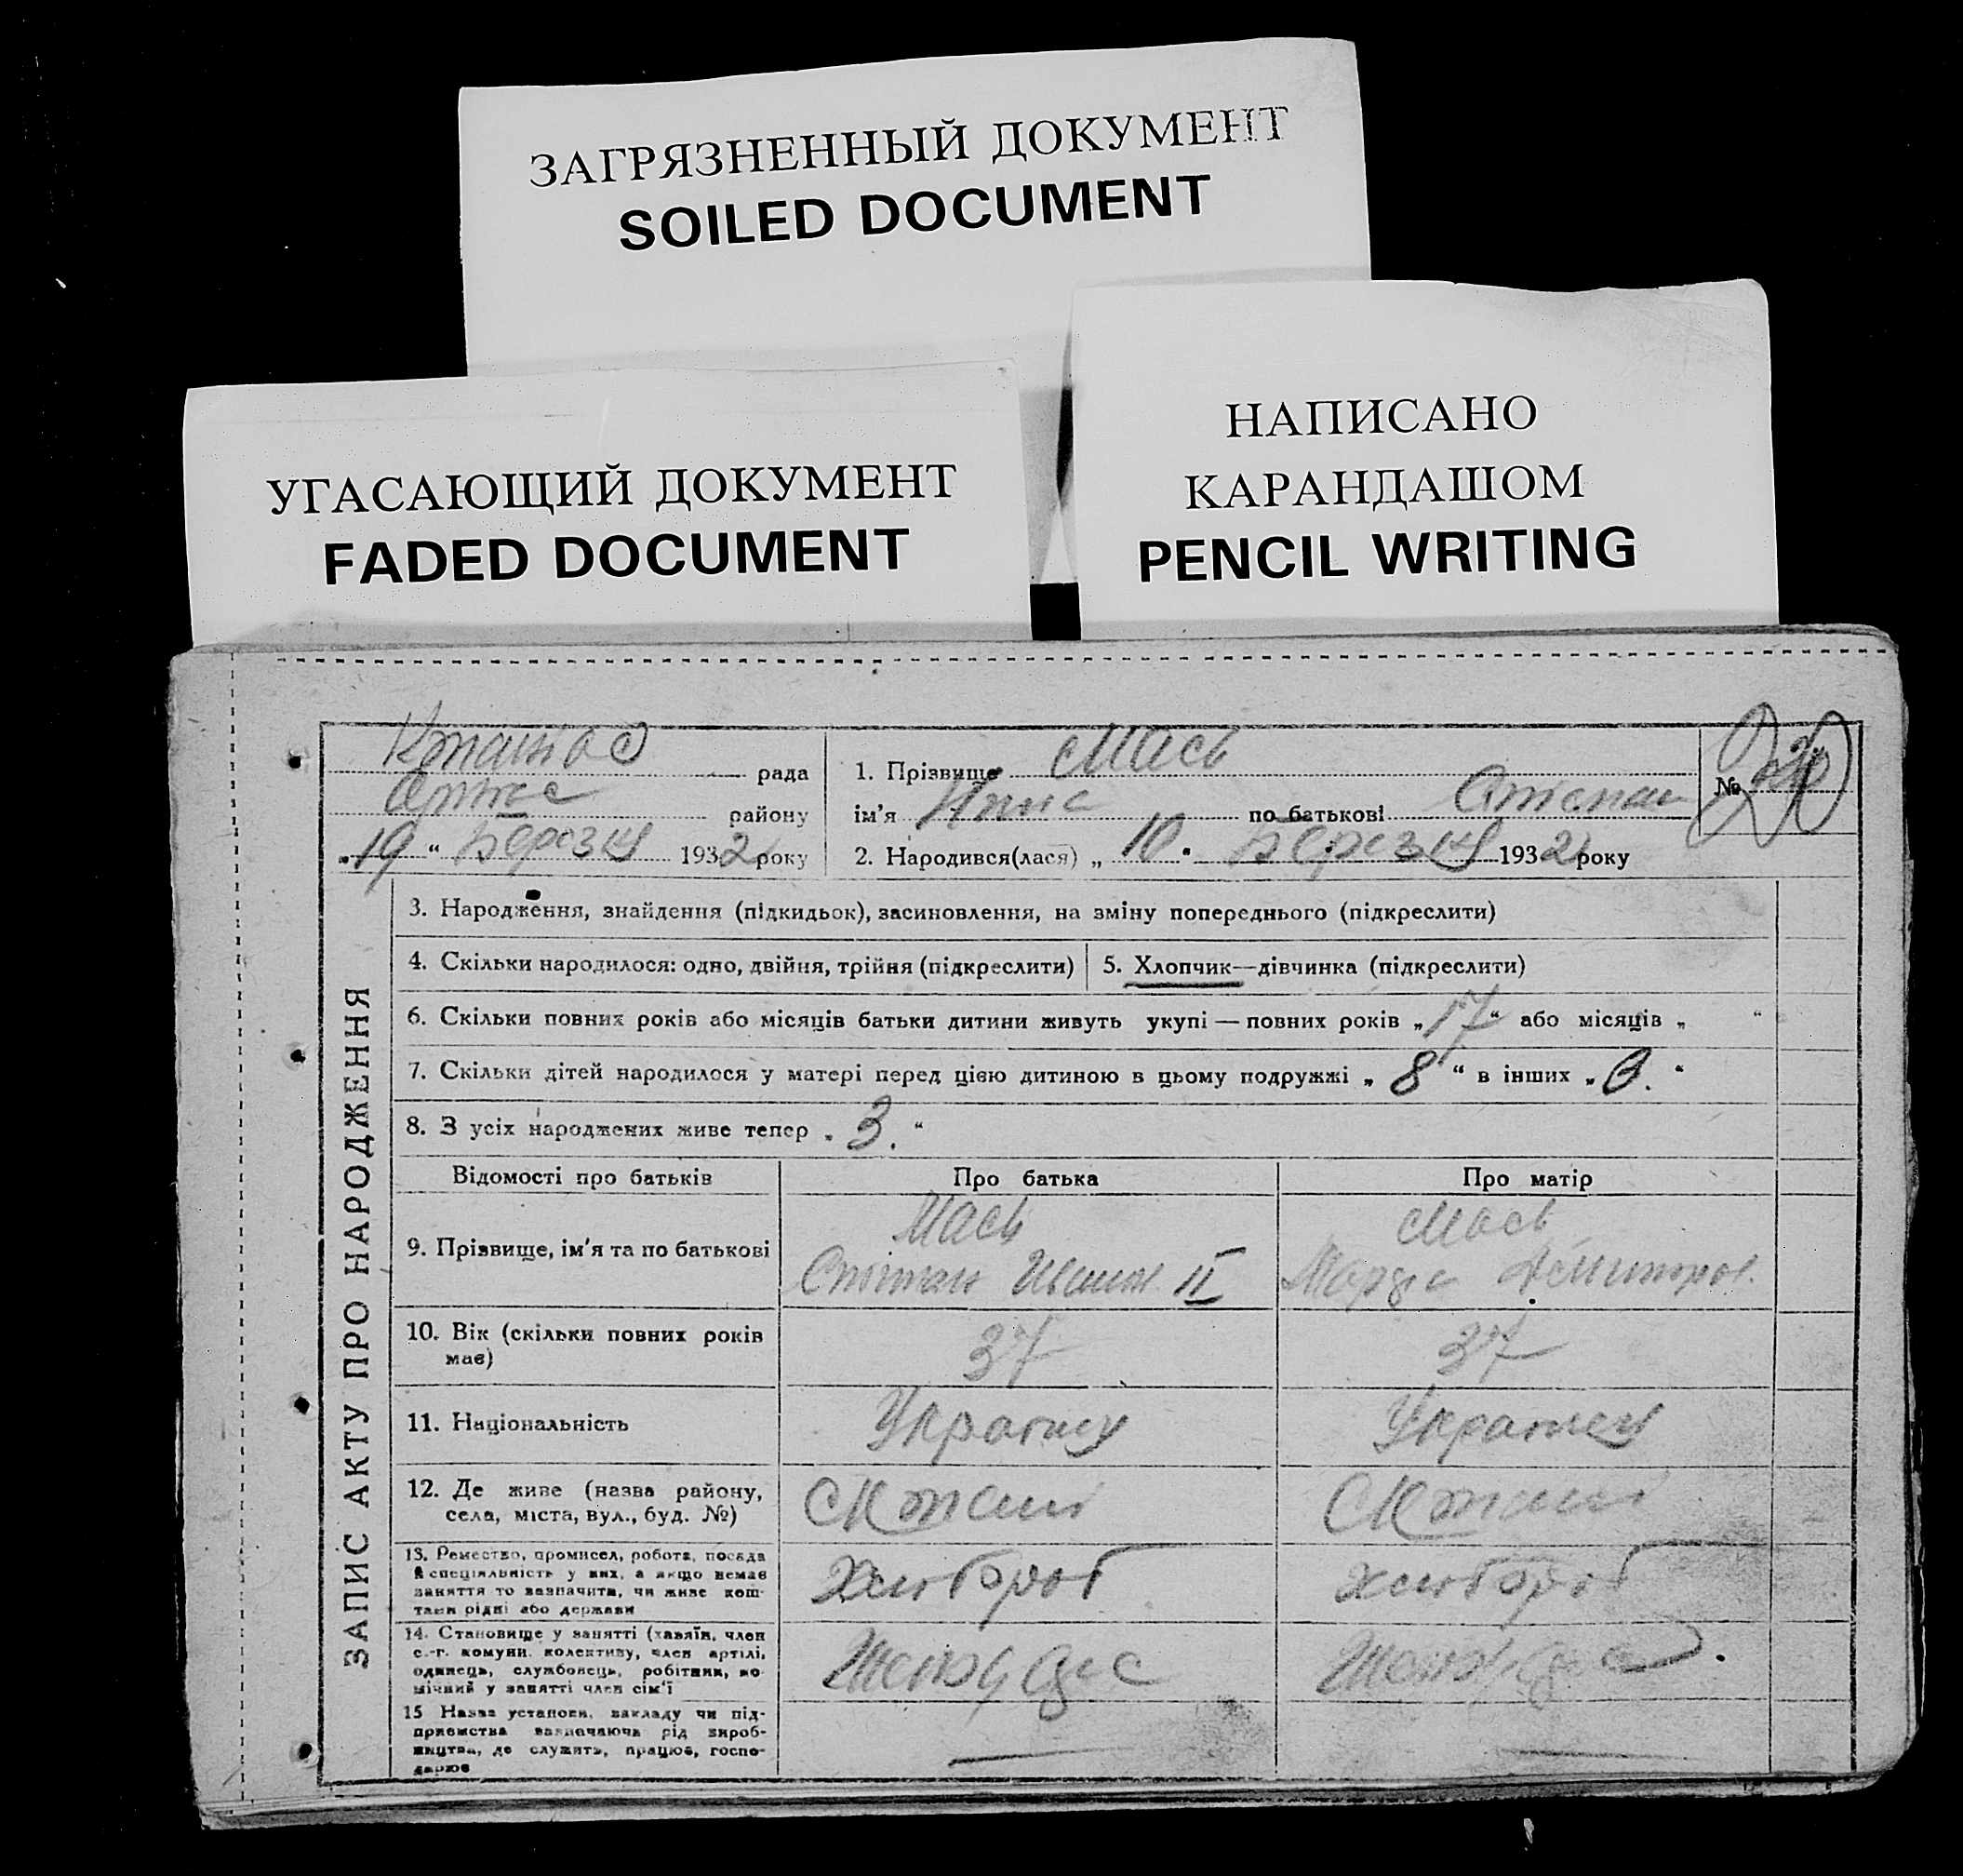 ЗАГРЯЗНЕННЫЙ ДОКУМЕНТ
SOILED DOCUMENT
УГАСАЮЩИЙ ДОКУМЕНТ
FADED DOCUMENT
НАПИСАНО
КАРАНДАШОМ
PENCIL WRITING
ЗАПИС АКТУ ПРО НАРОДЖЕННЯ
рада
району
„19“ Березня 1932 року
1. Прізвище Мась
ім'я по батькові
2. Народився(лася) „10“ Березня 1932 року
№
3. Народження, знайдення (підкидьок), засиновлення, на зміну попереднього (підкреслити)
4. Скільки народилося: одно, двійня, трійня (підкреслити)
5. Хлопчик—дівчинка (підкреслити)
6. Скільки повних років або місяців батьки дитини живуть укупі — повних років „17“ або місяців „ “
7. Скільки дітей народилося у матері перед цією дитиною в цьому подружжі „8“ в інших „0.“
8. З усіх народжених живе тепер „3.“
Відомості про батьків Про батька Про матір
9. Прізвище, ім'я та по батькові
Мась
II
Мась
10. Вік (скільки повних років
має)
37
37
11. Національність
12. Де живе (назва району,
села, міста, вул., буд. №)
13. Ремество, промисел, робота, посада
й спеціяльність у них, а якщо немає
заняття то зазначити, чи живе кош-
тами рідні або держави
Хлібороб
хлібороб
14. Становище у занятті (хазяїн, член
с.-г. комуни, колективу, член артілі,
одинець, службовець, робітник, по-
мічний у занятті член сім'ї
15 Назва установи, закладу чи під-
приємства зазначаючи рід вироб-
ництва, де служить, працює, госпо-
дарює